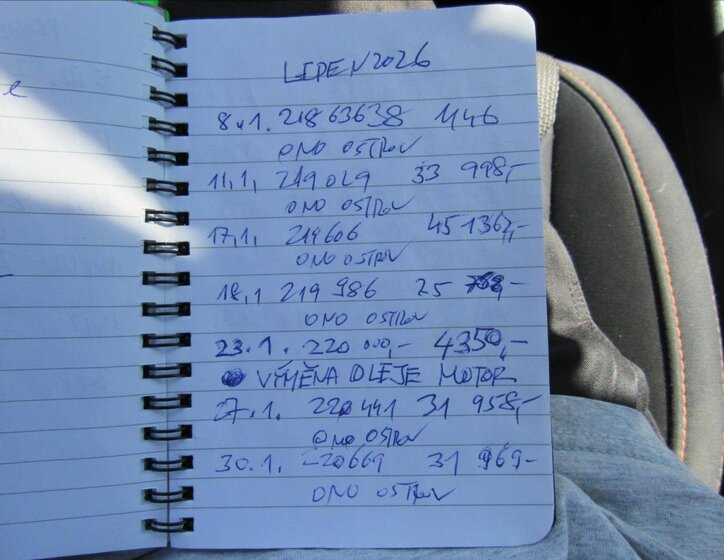 LEDEN 2026
8.1. 218 636 38 1146
ONO OSTROV
11,1, 219 029 33 998,-
ONO OSTROV
17,1, 219606 45 1362,-
ONO OSTROV
18,1 219 986 25
ONO OSTROV
23.1. 220 000,- 4350,-
VÝMĚNA OLEJE MOTOR
27.1. 220 441 31 958,-
ONO OSTROV
30.1. 220669 31 969-
ONO OSTROV